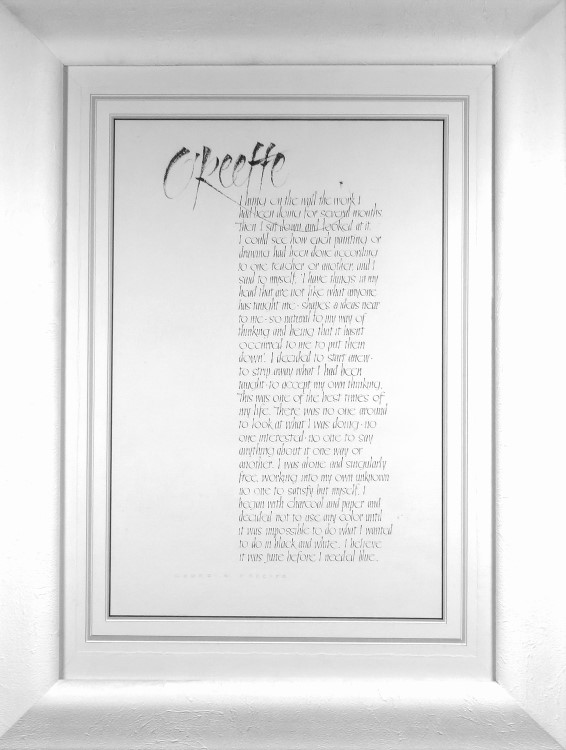 O'Keeffe
I hung on the wall the work I
had been doing for several months
Then I sat down and looked at it.
I could see how each painting or
drawing had been done according
to one teacher or another, and I
said to myself, 'I have things in my
head that are not like what anyone
has taught me - shapes & ideas near
to me - so natural to my way of
thinking and being that it hasn't
occurred to me to put them
down'. I decided to start anew -
to strip away what I had been
taught - to accept my own thinking.
This was one of the best times of
my life. There was no one around
to look at what I was doing - no
one interested - no one to say
anything about it one way or
another. I was alone and singularly
free, working into my own unknown
no one to satisfy but myself. I
began with charcoal and paper and
decided not to use any color until
it was impossible to do what I wanted
to do in black and white... I believe
it was June before I needed blue...